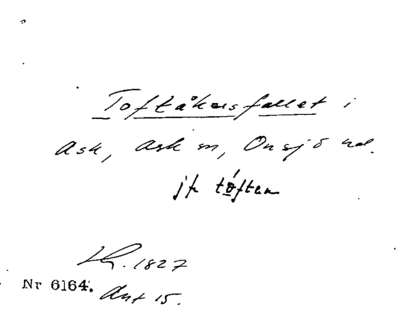 Toftåkersfallet i
Ask, Ask sn, Onsjö hd.
jfr töften
Lr. 1827
Nr 6164. Ant 15.